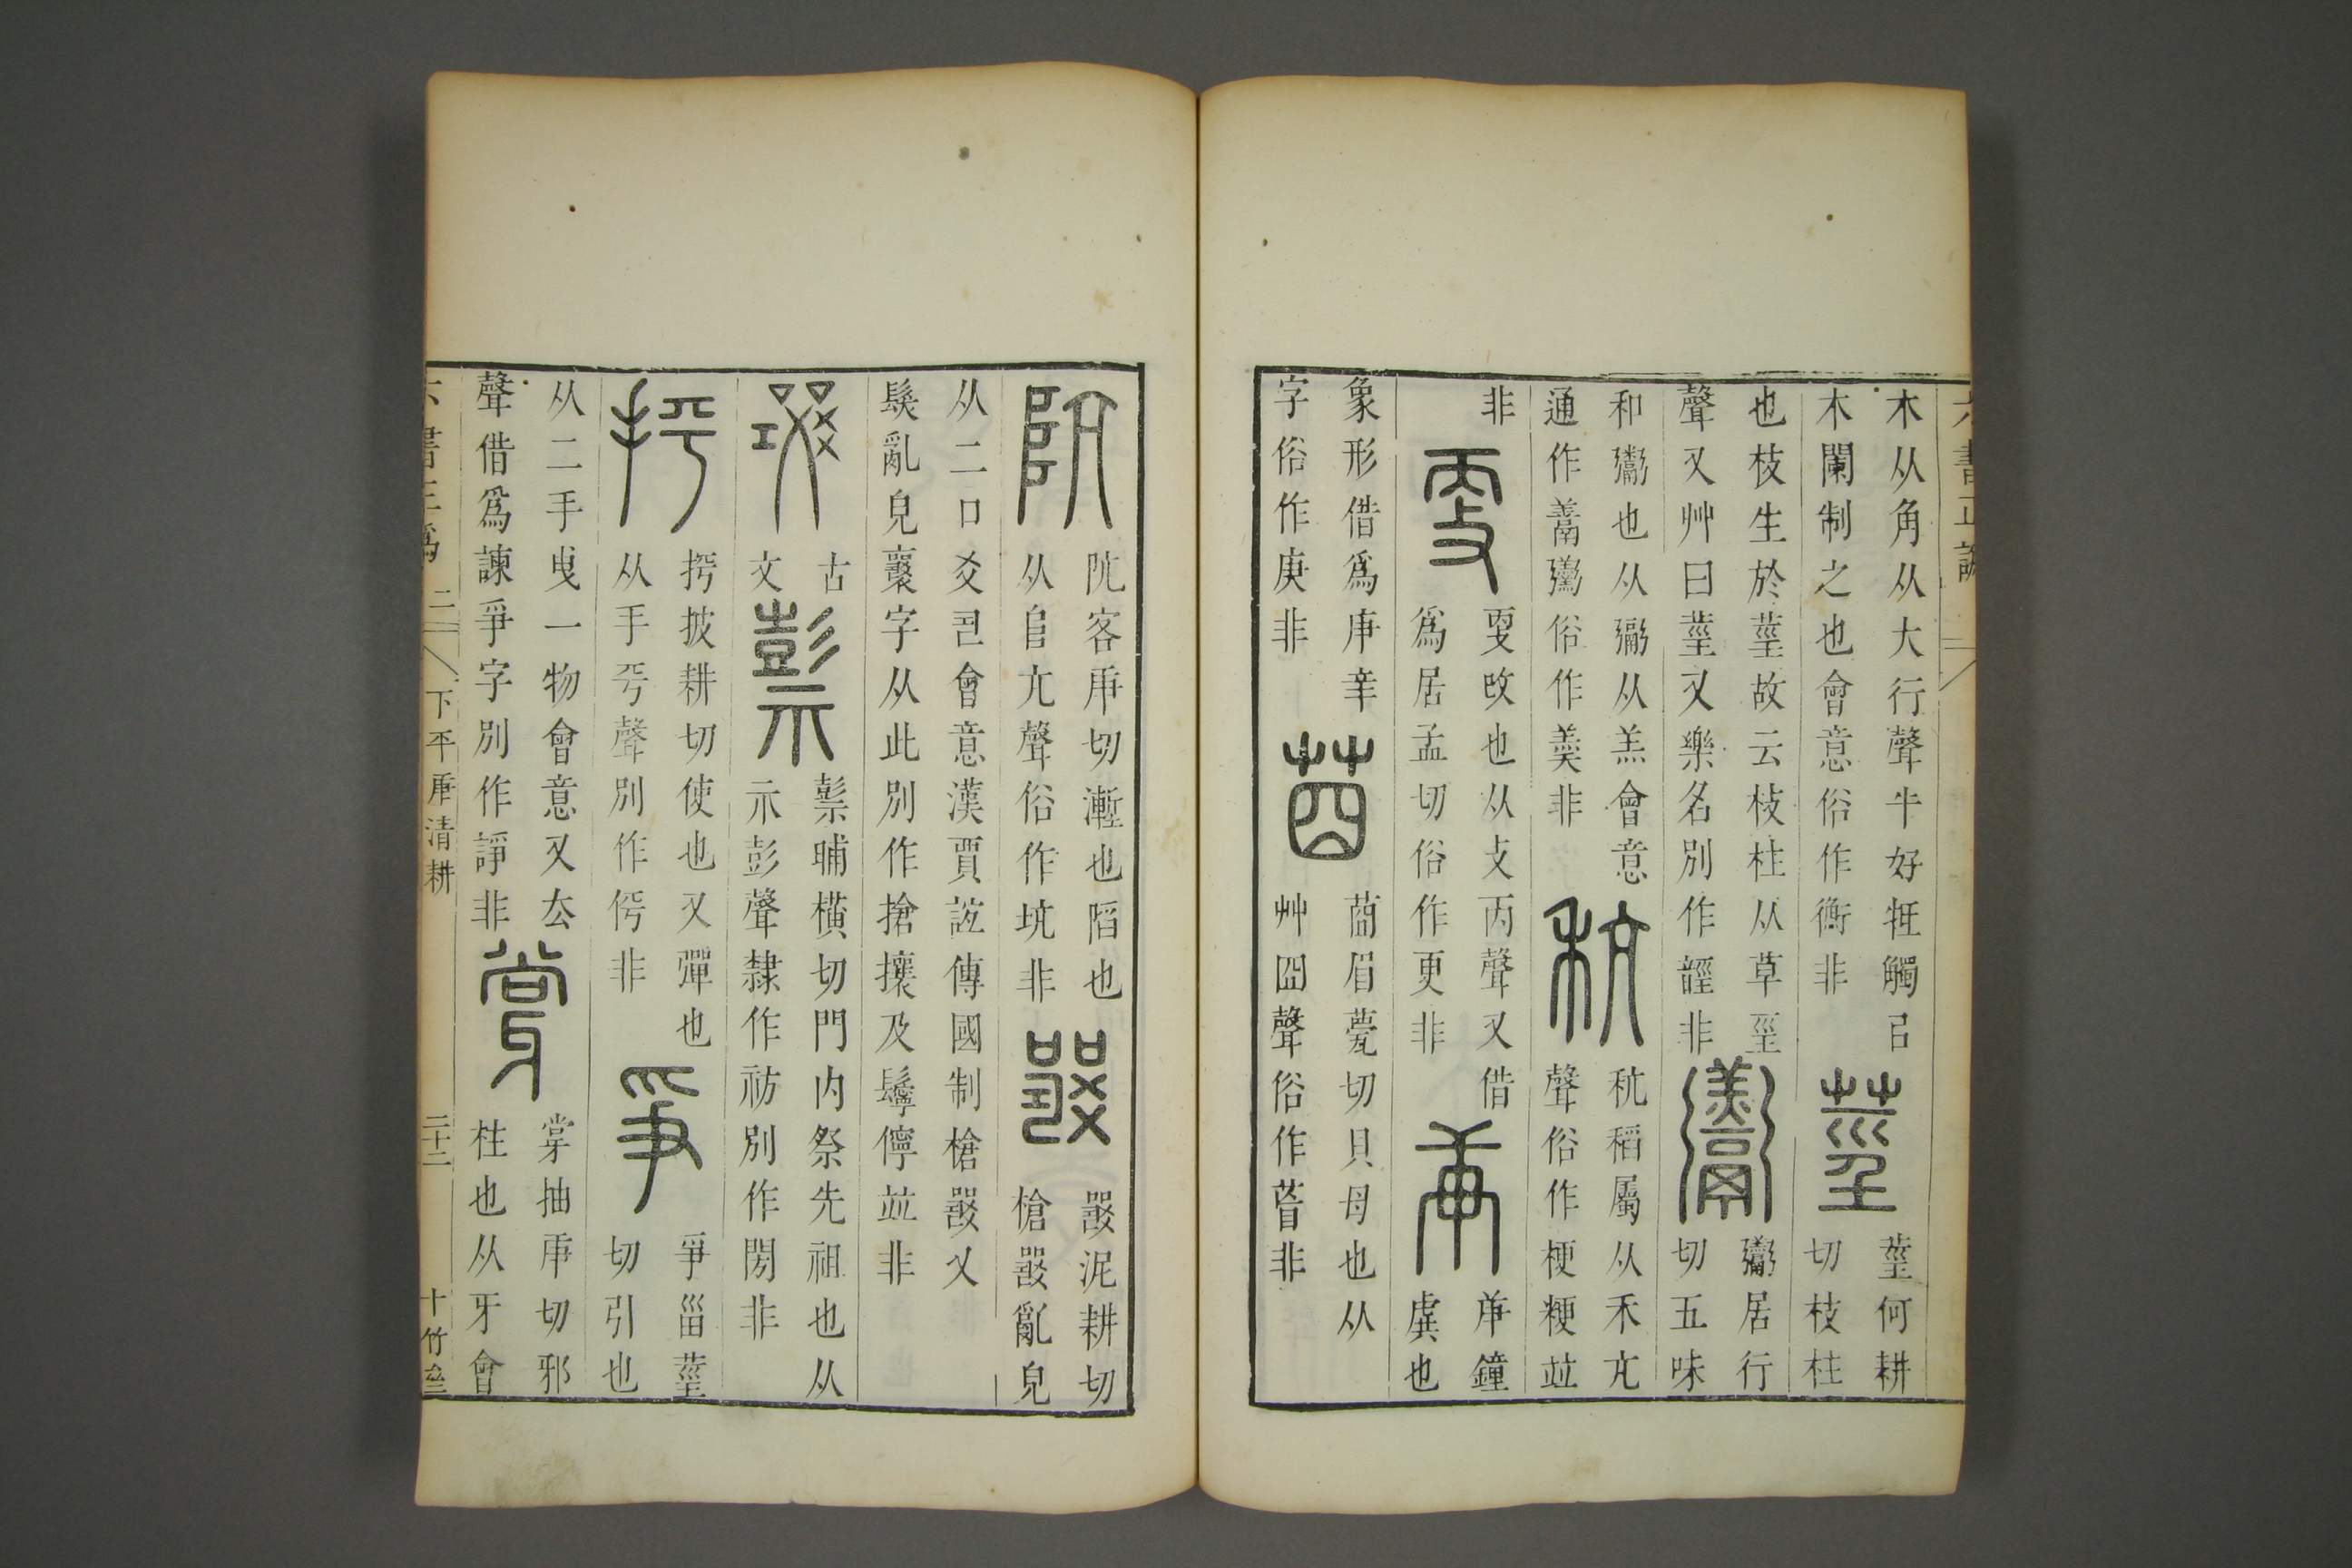 六書正譌
木从角从大行聲牛好牴觸㠯
木闌制之也會意俗作衡非
莖
莖何耕
切枝柱
也枝生於莖故云枝柱从草巠
聲又艸曰莖又樂名別作𩐥非
𩱧
𩱧居行
切五味
和𩱧也从𩰲从羔會意
通作𩱋𩱧俗作羹非
秔
秔稻屬从禾亢
聲俗作梗粳竝
非
㪅
㪅改也从攴丙聲又借
爲居孟切俗作更非
庚
庚鐘
虡也
象形借爲庚辛
字俗作庚非
莔
莔眉甍切貝母也从
艸囧聲俗作莔非
阬
阬客庚切漸也陷也
从𨸏亢聲俗作坑非
㗊
𠾂泥耕切
槍𠾂亂皃
从二口爻㠭會意漢賈誼傳國制槍𠾂又
鬤亂皃襄字从此別作搶攘及鬡儜竝非
古
文
𥛱
𥛱晡橫切門內祭先祖也从
示彭聲隸作祊別作閍非
抨
抨披耕切使也又彈也
从手平聲別作伻非
爭
爭甾莖
切引也
从二手曳一物會意又去
聲借爲諫爭字別作諍非
牚
牚抽庚切邪
柱也从牙會
六書正譌 二 下平庚清耕 二十二 十竹齋